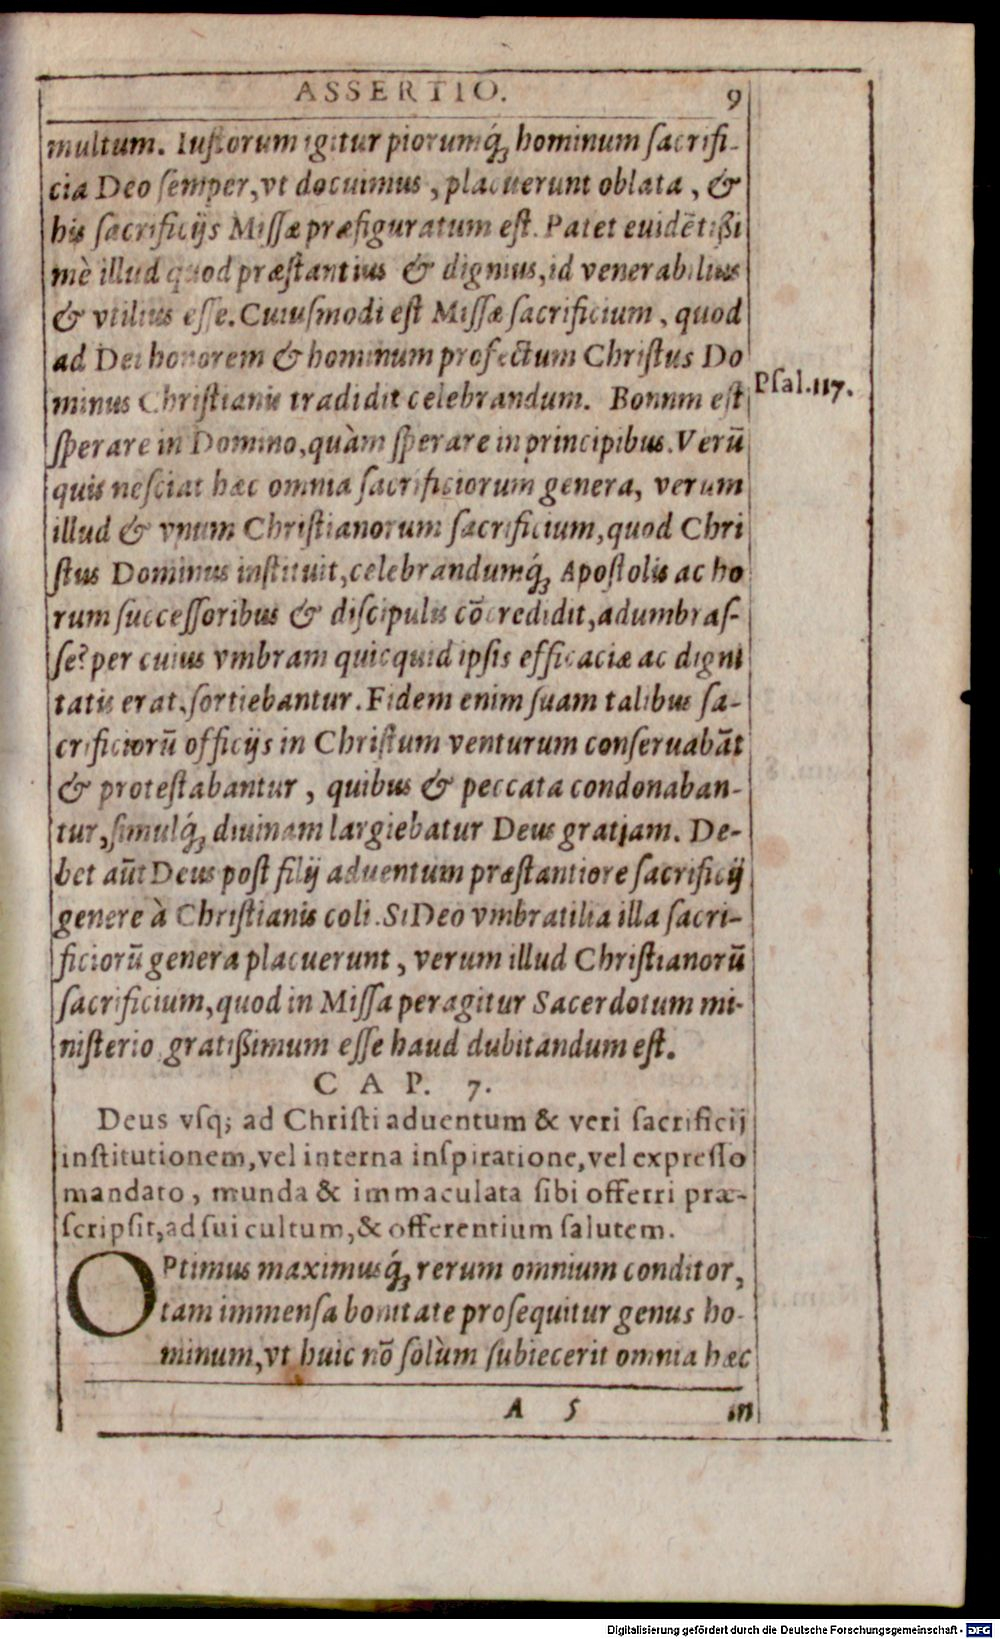 ASSERTIO. 9
multum. Iustorum igitur piorumq́ꝫ hominum sacrifi-
cia Deo semper, vt docuimus, placuerunt oblata, &
his sacrificijs Missæ præfiguratum est. Patet euidẽtißi
mè illud quod præstantius & dignius, id venerabilius
& vtilius esse. Cuiusmodi est Missæ sacrificium, quod
ad Dei honorem & hominum profectum Christus Do
minus Christianis tradidit celebrandum. Bonnm est
Psal. 117.
sperare in Domino, quàm sperare in principibus. Verũ
quis nesciat hæc omnia sacrificiorum genera, verum
illud & vnum Christianorum sacrificium, quod Chri
stus Dominus instituit, celebrandumq́ꝫ Apostolis ac ho
rum successoribus & discipulis cõcredidit, adumbras-
se? per cuius vmbram quicquid ipsis efficaciæ ac digni
tatis erat, sortiebantur. Fidem enim suam talibus sa-
crificiorũ officijs in Christum venturum conseruabãt
& protestabantur, quibus & peccata condonaban-
tur, simulq́ꝫ diuinam largiebatur Deus gratiam. De-
bet aũt Deus post filij aduentum præstantiore sacrificij
genere à Christianis coli. Si Deo vmbratilia illa sacri-
ficiorũ genera placuerunt, verum illud Christianorũ
sacrificium, quod in Missa peragitur Sacerdotum mi-
nisterio gratißimum esse haud dubitandum est.
CAP. 7.
Deus vsq; ad Christi aduentum & veri sacrificij
institutionem, vel interna inspiratione, vel expresso
mandato, munda & immaculata sibi offerri præ-
scripsit, ad sui cultum, & offerentium salutem.
OPtimus maximusq́ꝫ rerum omnium conditor,
tam immensa bonitate prosequitur genus ho-
minum, vt huic nõ solùm subiecerit omnia hæc
A 5 in
Digitalisierung gefördert durch die Deutsche Forschungsgemeinschaft - DFG